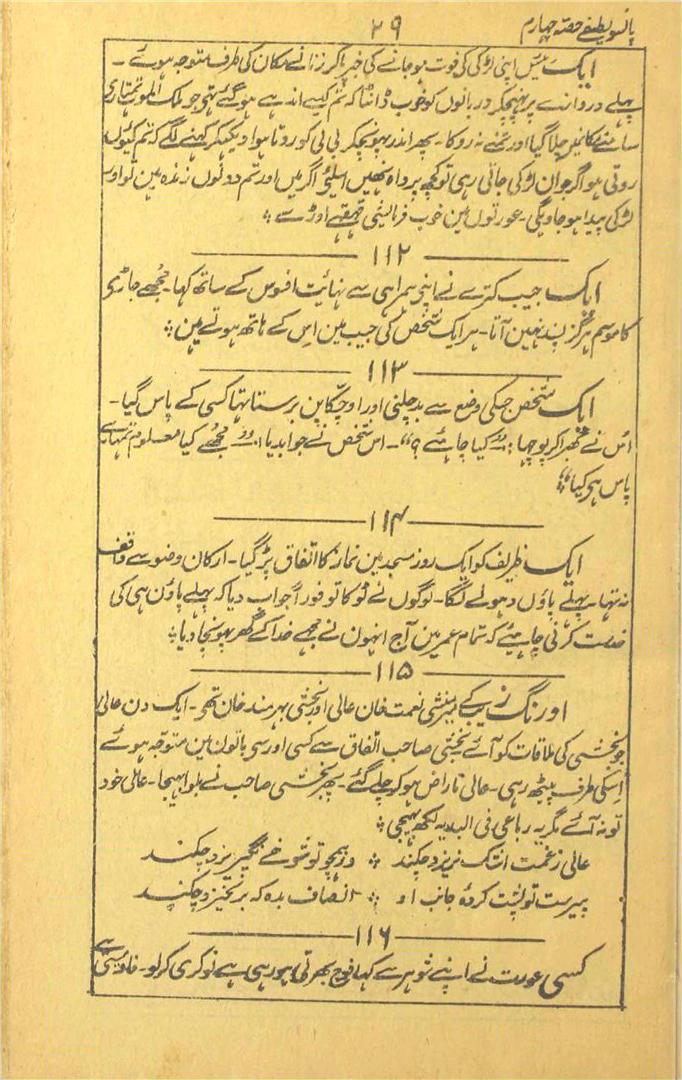 پانسو لطیفے حصہ چہارم
۲۹
ایک رئیس اپنی لڑکی کی فوت ہو جانے کی خبر پاکر زنانے مکان کی طرف متوجہ ہوئے۔
پہلے دروازے پر پہنچکر دربانوں کو خوب ڈانٹا کہ تم کیسے اندہے ہو گئے تہی جو ملک الموت تمہاری
سامنے مکانمیں چلا گیا اور تمنے نہ روکا۔ پھر اندر پہونچکر بی بی کو روتا ہوا دیکہکر کہنے لگے کہ تم کیوں
روتی ہو اگر جوان لڑکی جاتی رہی تو کچھ پرواہ نہیں اسلئے اگر میں اور تم دونوں زندہ ہین تو اور
لڑکی پیدا ہو جاویگی۔ عورتوں مین خوب فرمایشی قہقہے اوڑے سے ؞
۱۱۲
ایک جیب کترے نے اپنی ہمراہی سے نہایت افسوس کے ساتھ کہا۔ مجھے جاڑیکا
کا موسم ہرگز پسند نہین آتا۔ ہر ایک شخص کی جیب مین اس کے ہاتھ ہوتے ہین ؞
۱۱۳
ایک شخص جسکی وضع سے بدچلنی اور اوچکاپن برستا تہا کسی کے پاس گیا۔
اُس نے گھبرا کر پوچہا: ”کیا چاہئے ؟“۔ اس شخص نے جواب دیا: ”مجھے کیا معلوم تمہارے
پاس ہو کیا“ ؞
۱۱۴
ایک ظریف کو ایک روز مسجد مین نماز کا اتفاق پڑ گیا۔ ارکان وضو سے واقف
نہ تہا۔ پہلے پاؤں دہونے لگا۔ لوگوں نے ٹوکا تو فوراً جواب دیا کہ پہلے پاؤن ہی کی
خدمت کرنی چاہیئے کہ تمام عمر مین آج انہون نے مجھے خدا کے گھر پہونچا دیا ؞
۱۱۵
اورنگ زیب کے میر منشی نعمت خان عالی اور بخشی بہرہ مند خان تھی۔ ایک دن عالی
جو بخشی کی ملاقات کو آئے بخشی صاحب اتفاق سے کسی اور سی باتوں مین متوجہ ہوئے
اِسکی طرف پیٹھ رہی۔ عالی ناراض ہو کر چلے گئے۔ پھر بخشی صاحب نے بلوا بہیجا۔ عالی خود
تو نہ آئے مگر یہ رباعی فی البدیہ لکھ بہیجی ؞
عالی زغمت اشک نریزد چکند ؞ وز ہمچو تو شوخے نگریزد چکند
پیرست تو پشت کردۂ جانب او ؞ انصاف بدہ کہ برنخیزد چکند
۱۱۶
کسی عورت نے اپنے شوہر سے کہا فوج بھرتی ہو رہی ہے نوکری کر لو۔